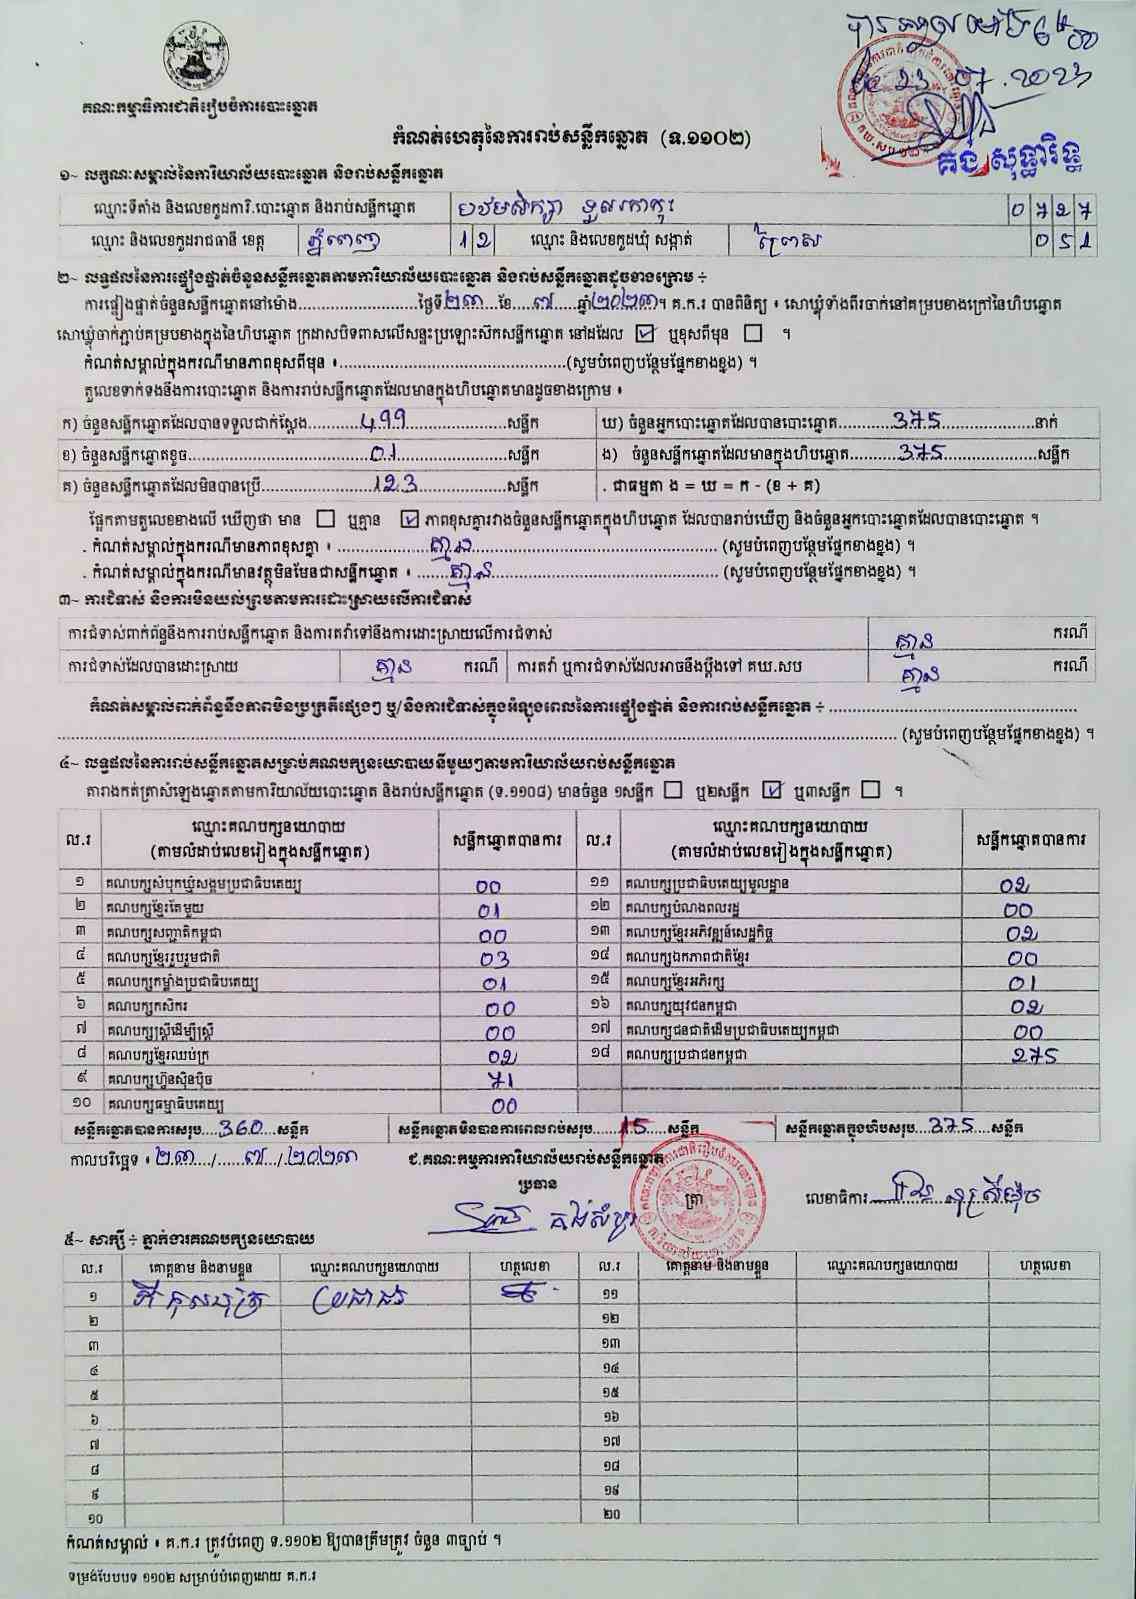 បានទទួលម៉ោង
23.07.2023
គណៈកម្មាធិការជាតិរៀបចំការបោះឆ្នោត
គង់ សុទ្ធារិទ្ធ
កំណត់ហេតុនៃការរាប់សន្លឹកឆ្នោត (ទ.១១០២)
១~ លក្ខណៈសម្គាល់នៃការិយាល័យបោះឆ្នោត និងរាប់សន្លឹកឆ្នោត
ឈ្មោះទីតាំង និងលេខកូដការិ.បោះឆ្នោត និងរាប់សន្លឹកឆ្នោត បឋមសិក្សា ទួលរកាកុះ 0727
ឈ្មោះ និងលេខកូដរាជធានី ខេត្ត ភ្នំពេញ 12 ឈ្មោះ និងលេខកូដឃុំ សង្កាត់ ព្រៃស 051
២~ លទ្ធផលនៃការផ្ទៀងផ្ទាត់ចំនួនសន្លឹកឆ្នោតតាមការិយាល័យបោះឆ្នោត និងរាប់សន្លឹកឆ្នោតដូចខាងក្រោម ÷
ការផ្ទៀងផ្ទាត់ចំនួនសន្លឹកឆ្នោតនៅម៉ោង..............ថ្ងៃទី២៣ ខែ....៧....ឆ្នាំ២០២៣។ គ.ក.រ បានពិនិត្យ ៖ សោឃ្លុំទាំងពីរចាក់នៅគម្របខាងក្រៅនៃហិបឆ្នោត
សោឃ្លុំចាក់ភ្ជាប់គម្របខាងក្នុងនៃហិបឆ្នោត ក្រដាសបិទពាសលើសន្ទះប្រឡោះសឹកសន្លឹកឆ្នោត នៅដដែល ☑ ឬខុសពីមុន ☐ ។
កំណត់សម្គាល់ក្នុងករណីមានភាពខុសពីមុន ៖..............(សូមបំពេញបន្ថែមផ្នែកខាងខ្នង) ។
តួលេខទាក់ទងនឹងការបោះឆ្នោត និងការរាប់សន្លឹកឆ្នោតដែលមានក្នុងហិបឆ្នោតមានដូចខាងក្រោម ៖
ក) ចំនួនសន្លឹកឆ្នោតដែលបានទទួលជាក់ស្តែង..........499..........សន្លឹក ឃ) ចំនួនអ្នកបោះឆ្នោតដែលបានបោះឆ្នោត..........375..........នាក់
ខ) ចំនួនសន្លឹកឆ្នោតខូច..........01..........សន្លឹក ង) ចំនួនសន្លឹកឆ្នោតដែលមានក្នុងហិបឆ្នោត..........375..........សន្លឹក
គ) ចំនួនសន្លឹកឆ្នោតដែលមិនបានប្រើ..........123..........សន្លឹក . ជាធម្មតា ង = ឃ = ក - (ខ + គ)
ផ្អែកតាមតួលេខខាងលើ ឃើញថា មាន ☐ ឬគ្មាន ☑ ភាពខុសគ្នារវាងចំនួនសន្លឹកឆ្នោតក្នុងហិបឆ្នោត ដែលបានរាប់ឃើញ និងចំនួនអ្នកបោះឆ្នោតដែលបានបោះឆ្នោត ។
. កំណត់សម្គាល់ក្នុងករណីមានភាពខុសគ្នា ៖ ..........គ្មាន.......... (សូមបំពេញបន្ថែមផ្នែកខាងខ្នង) ។
. កំណត់សម្គាល់ក្នុងករណីមានវត្ថុមិនមែនជាសន្លឹកឆ្នោត ៖ ..........គ្មាន.......... (សូមបំពេញបន្ថែមផ្នែកខាងខ្នង) ។
៣~ ការជំទាស់ និងការមិនយល់ព្រមតាមការដោះស្រាយលើការជំទាស់
ការជំទាស់ពាក់ព័ន្ធនឹងការរាប់សន្លឹកឆ្នោត និងការតវ៉ាទៅនឹងការដោះស្រាយលើការជំទាស់ គ្មាន ករណី
ការជំទាស់ដែលបានដោះស្រាយ គ្មាន ករណី ការតវ៉ា ឬការជំទាស់ដែលអាចនឹងប្តឹងទៅ គឃ.សប គ្មាន ករណី
កំណត់សម្គាល់ពាក់ព័ន្ធនឹងភាពមិនប្រក្រតីផ្សេងៗ ឬ/និងការជំទាស់ក្នុងអំឡុងពេលនៃការផ្ទៀងផ្ទាត់ និងការរាប់សន្លឹកឆ្នោត ÷ ..............
.............. (សូមបំពេញបន្ថែមផ្នែកខាងខ្នង) ។
៤~ លទ្ធផលនៃការរាប់សន្លឹកឆ្នោតសម្រាប់គណបក្សនយោបាយនីមួយៗតាមការិយាល័យរាប់សន្លឹកឆ្នោត
តារាងកត់ត្រាសំឡេងឆ្នោតតាមការិយាល័យបោះឆ្នោត និងរាប់សន្លឹកឆ្នោត (ទ.១១០៨) មានចំនួន ១សន្លឹក ☐ ឬ២សន្លឹក ☑ ឬ៣សន្លឹក ☐ ។
ល.រ ឈ្មោះគណបក្សនយោបាយ (តាមលំដាប់លេខរៀងក្នុងសន្លឹកឆ្នោត) សន្លឹកឆ្នោតបានការ ល.រ ឈ្មោះគណបក្សនយោបាយ (តាមលំដាប់លេខរៀងក្នុងសន្លឹកឆ្នោត) សន្លឹកឆ្នោតបានការ
១ គណបក្សសំបុកឃ្មុំសង្គមប្រជាធិបតេយ្យ 00 ១១ គណបក្សប្រជាធិបតេយ្យមូលដ្ឋាន 02
២ គណបក្សខ្មែរតែមួយ 01 ១២ គណបក្សបំណងពលរដ្ឋ 00
៣ គណបក្សសញ្ជាតិកម្ពុជា 00 ១៣ គណបក្សខ្មែរអភិវឌ្ឍន៍សេដ្ឋកិច្ច 02
៤ គណបក្សខ្មែររួបរួមជាតិ 03 ១៤ គណបក្សឯកភាពជាតិខ្មែរ 00
៥ គណបក្សកម្លាំងប្រជាធិបតេយ្យ 01 ១៥ គណបក្សខ្មែរអភិរក្ស 01
៦ គណបក្សកសិករ 00 ១៦ គណបក្សយុវជនកម្ពុជា 02
៧ គណបក្សស្ត្រីដើម្បីស្ត្រី 00 ១៧ គណបក្សជនជាតិដើមប្រជាធិបតេយ្យកម្ពុជា 00
៨ គណបក្សខ្មែរឈប់ក្រ 02 ១៨ គណបក្សប្រជាជនកម្ពុជា 275
៩ គណបក្សហ៊្វុនស៊ិនប៉ិច 71
១០ គណបក្សធម្មាធិបតេយ្យ 00
សន្លឹកឆ្នោតបានការសរុប....360....សន្លឹក សន្លឹកឆ្នោតមិនបានការពេលរាប់សរុប.......15....សន្លឹក សន្លឹកឆ្នោតក្នុងហិបសរុប...375....សន្លឹក
កាលបរិច្ឆេទ ៖ ២៣/....៧..../២០២៣ ជ.គណៈកម្មការការិយាល័យរាប់សន្លឹកឆ្នោត
ប្រធាន ត្រា លេខាធិការ
៥~ សាក្សី ÷ ភ្នាក់ងារគណបក្សនយោបាយ
ល.រ គោត្តនាម និងនាមខ្លួន ឈ្មោះគណបក្សនយោបាយ ហត្ថលេខា ល.រ គោត្តនាម និងនាមខ្លួន ឈ្មោះគណបក្សនយោបាយ ហត្ថលេខា
១ ប្រជាជន ១១
២ ១២
៣ ១៣
៤ ១៤
៥ ១៥
៦ ១៦
៧ ១៧
៨ ១៨
៩ ១៩
១០ ២០
កំណត់សម្គាល់ ៖ គ.ក.រ ត្រូវបំពេញ ទ.១១០២ ឱ្យបានត្រឹមត្រូវ ចំនួន ៣ច្បាប់ ។
ទម្រង់បែបបទ ១១០២ សម្រាប់បំពេញដោយ គ.ក.រ